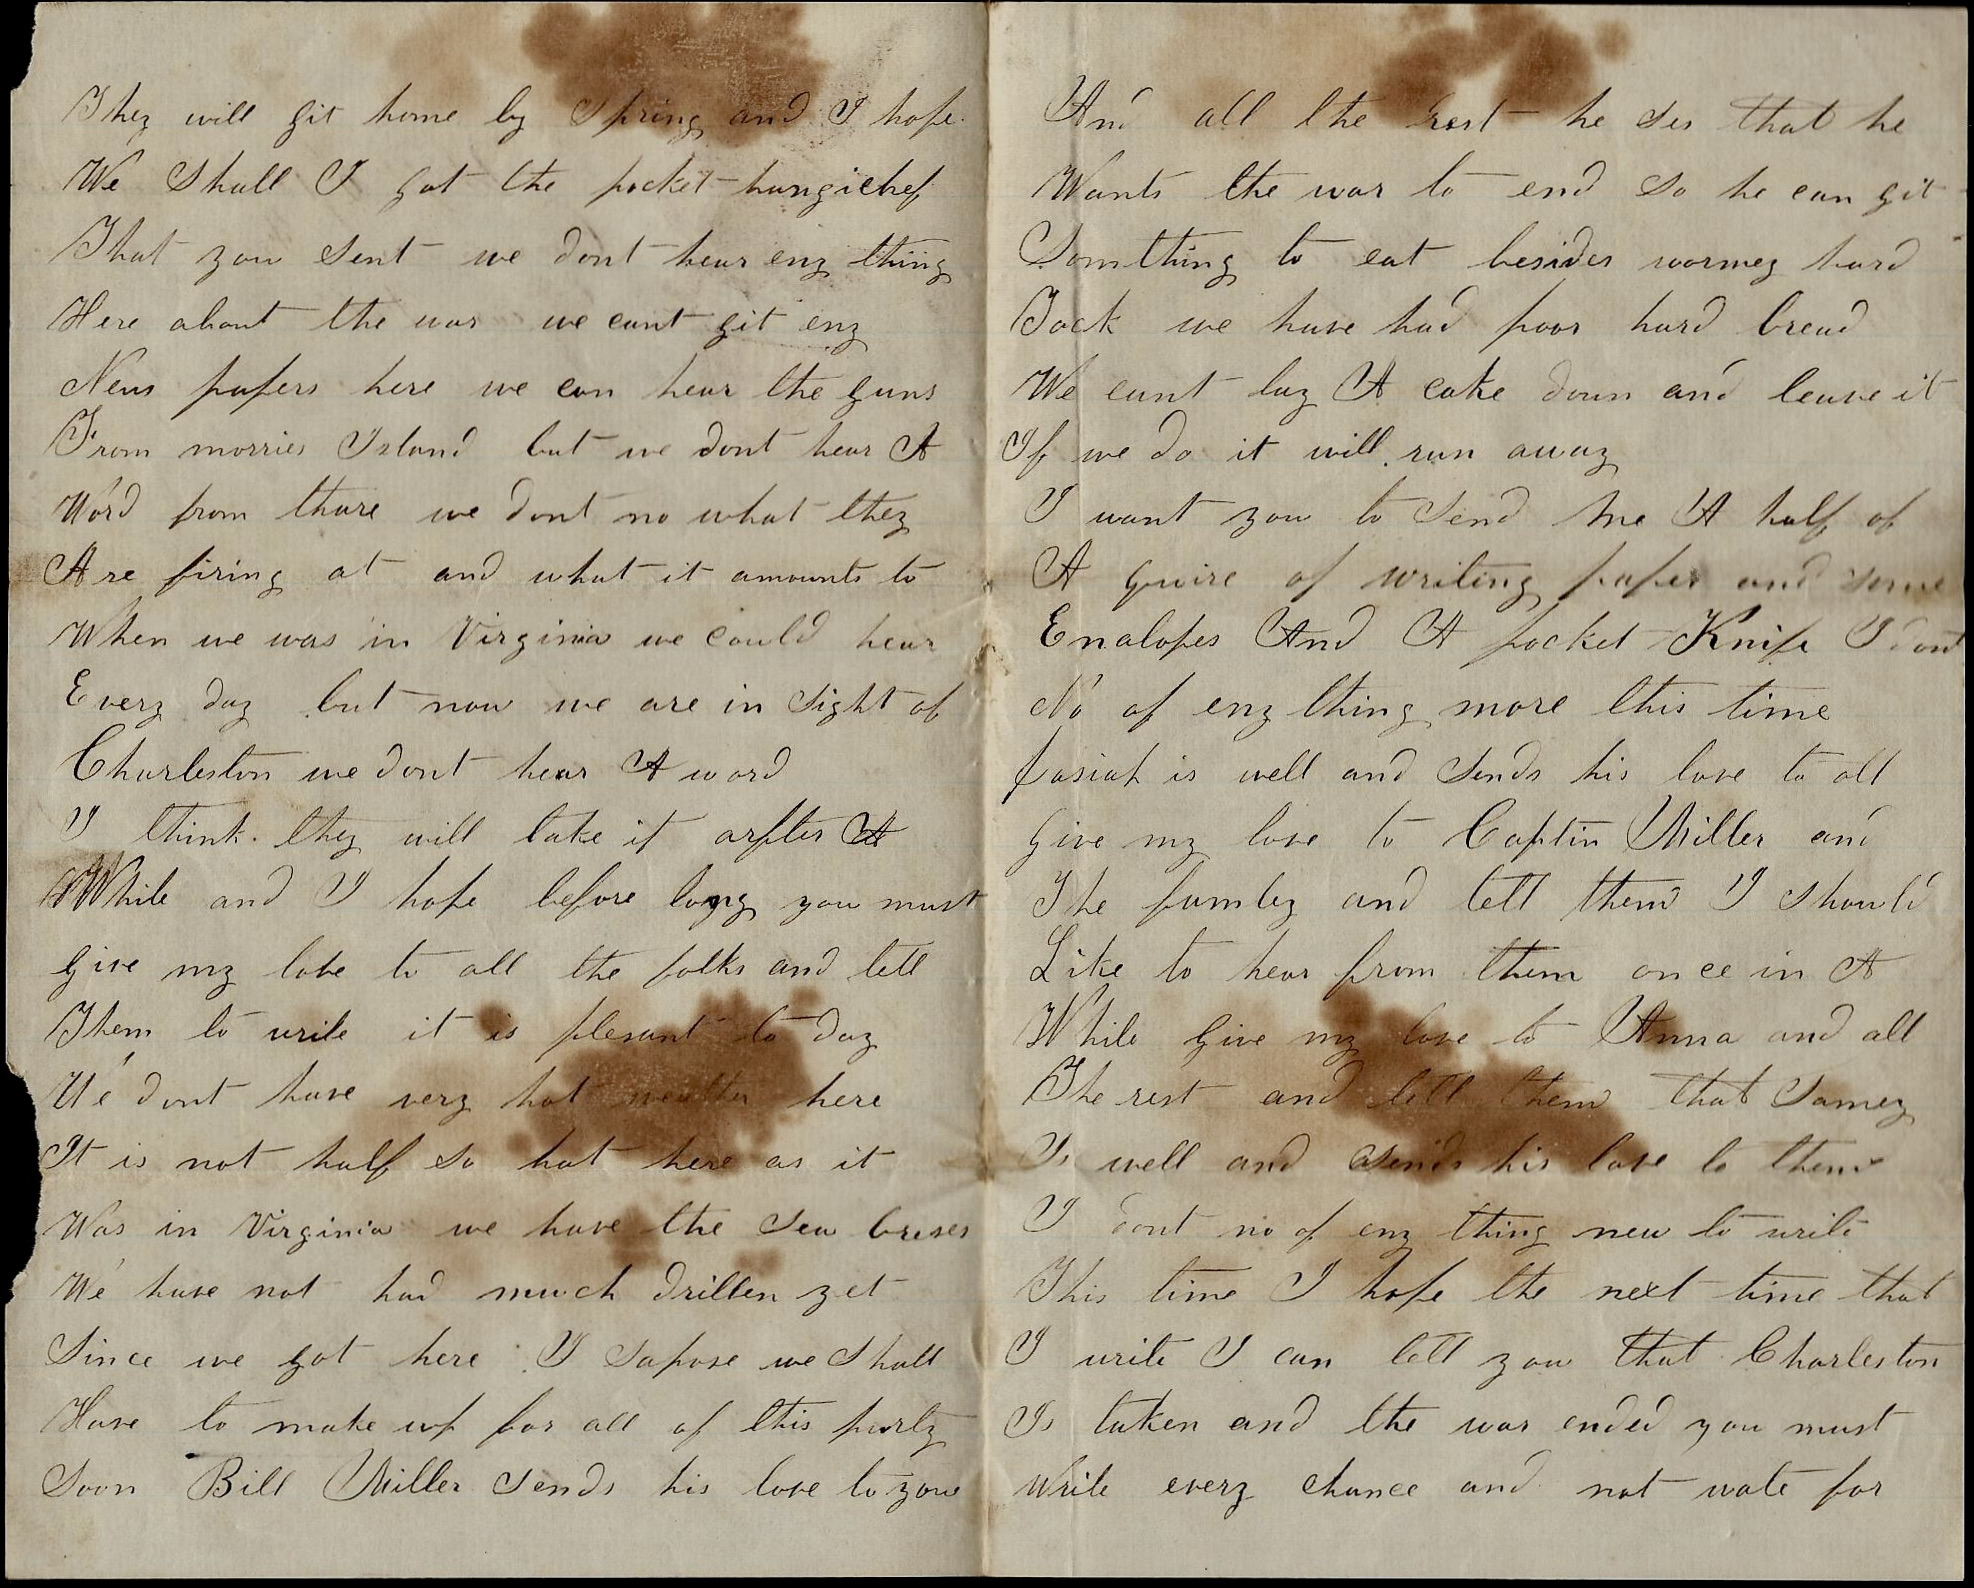 They will git home by Spring and I hope
We Shall I got the pocket hangichef
That you Sent we dont hear eny thing
Here about the war we cant git eny
News papers here we can hear the guns
From morries Island but we dont hear A
Word from thare we dont no what they
Are firing at and what it amounts to
When we was in Virginia we could hear
Every day but now we are in Sight of
Charleston we dont hear A word
I think they will take it arfter A
While and I hope before long you must
Give my love to all the folks and tell
Them to write it is plesant to day
We dont have very hot weather here
It is not half So hot here as it
Was in Virginia we have the Sea breses
We have not had much drillen yet
Since we got here I Sapose we Shall
Have to make up for all of this purty
Soon Bill Miller Sends his love to you
And all the rest he Ses that he
Wants the war to end So he can git
Somthing to eat besides wormey hard
Tack we have had poor hard bread
We cant lay A cake down and leave it
If we do it will run away
I want you to Send me A half of
A quire of writing paper and some
Enalopes And A pocket Knife I dont
No of eny thing more this time
Josiah is well and Sends his love to all
Give my love to Captin Miller and
The famley and tell them I should
Like to hear from them once in A
While Give my love to Anna and all
The rest and tell them that Samey
Is well and Sends his love to them
I dont no of eny thing new to write
This time I hope the next time that
I write I can tell you that Charleston
Is taken and the war ended you must
Write every chance and not wate for